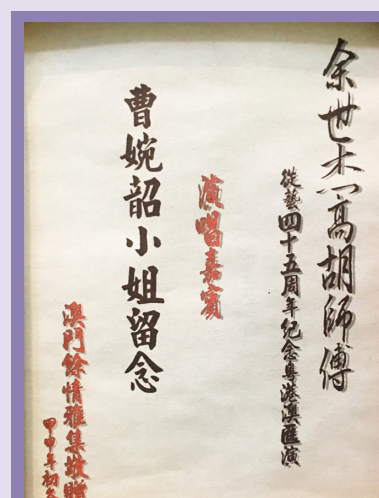 余世杰高胡師傅
從藝四十五周年纪念粤港澳匯演
演唱嘉賓
曹婉韶小姐留念
澳門餘情雅集敬贈
甲申年初